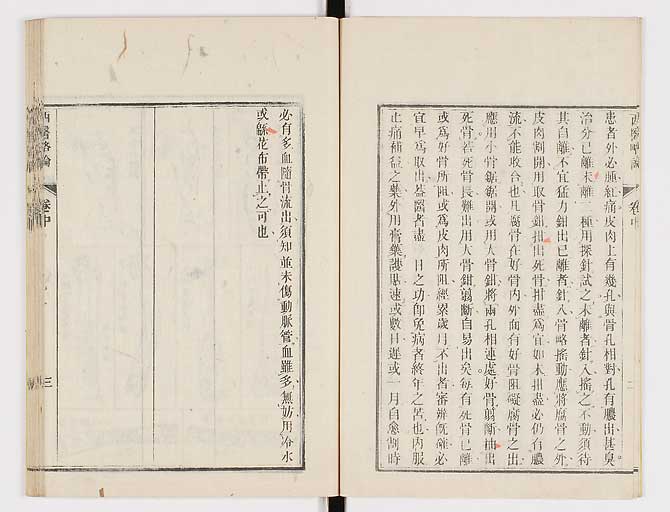 患者外必腫紅痛皮肉上有幾孔與骨孔相對孔有膿出甚臭
治分已離未離二種用探針試之未離者針入搖之不動須待
其自離不宜猛力鉗出已離者針入骨略搖動應將腐骨之外
皮肉割開用取骨鉗拑出死骨拑盡為宜如未拑盡必仍有膿
流不能收合也凡腐骨在好骨內外面有好骨阻礙腐骨之出
應用小骨鋸鋸開或用人骨鉗將兩孔相連處好骨剪斷抽出
死骨若死骨長難出用大骨鉗剪斷自易出矣每有死骨已離
或為好骨所阻或為皮肉所阻經累歲月不出者審辨旣確必
宜早為取出蓋醫者盡一日之功卽免病者終年之苦也內服
止痛補益之藥外用膏藥護貼速或數日遲或一月自愈割時
西醫略論
卷中
二
必有多血隨骨流出須知並未傷動脈管血雖多無妨用冷水
或綿花布帶止之可也
西醫略論
卷中
三